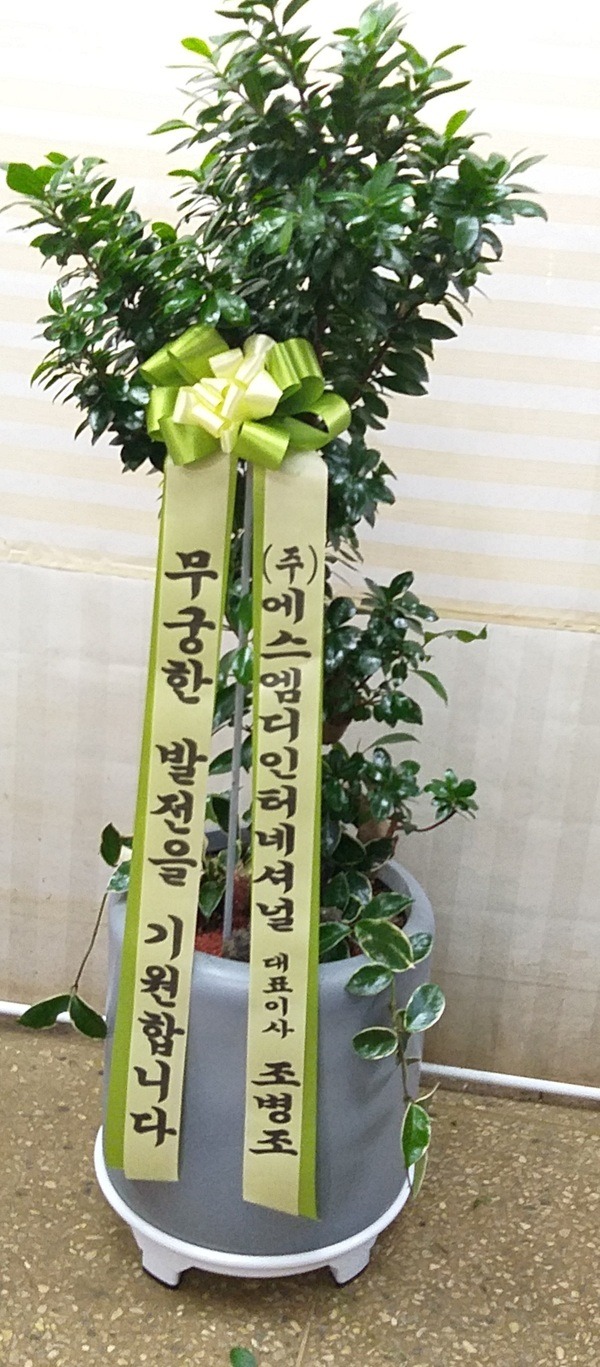 무궁한 발전을 기원합니다
(주)에스엠디인터네셔널 대표이사 조병조